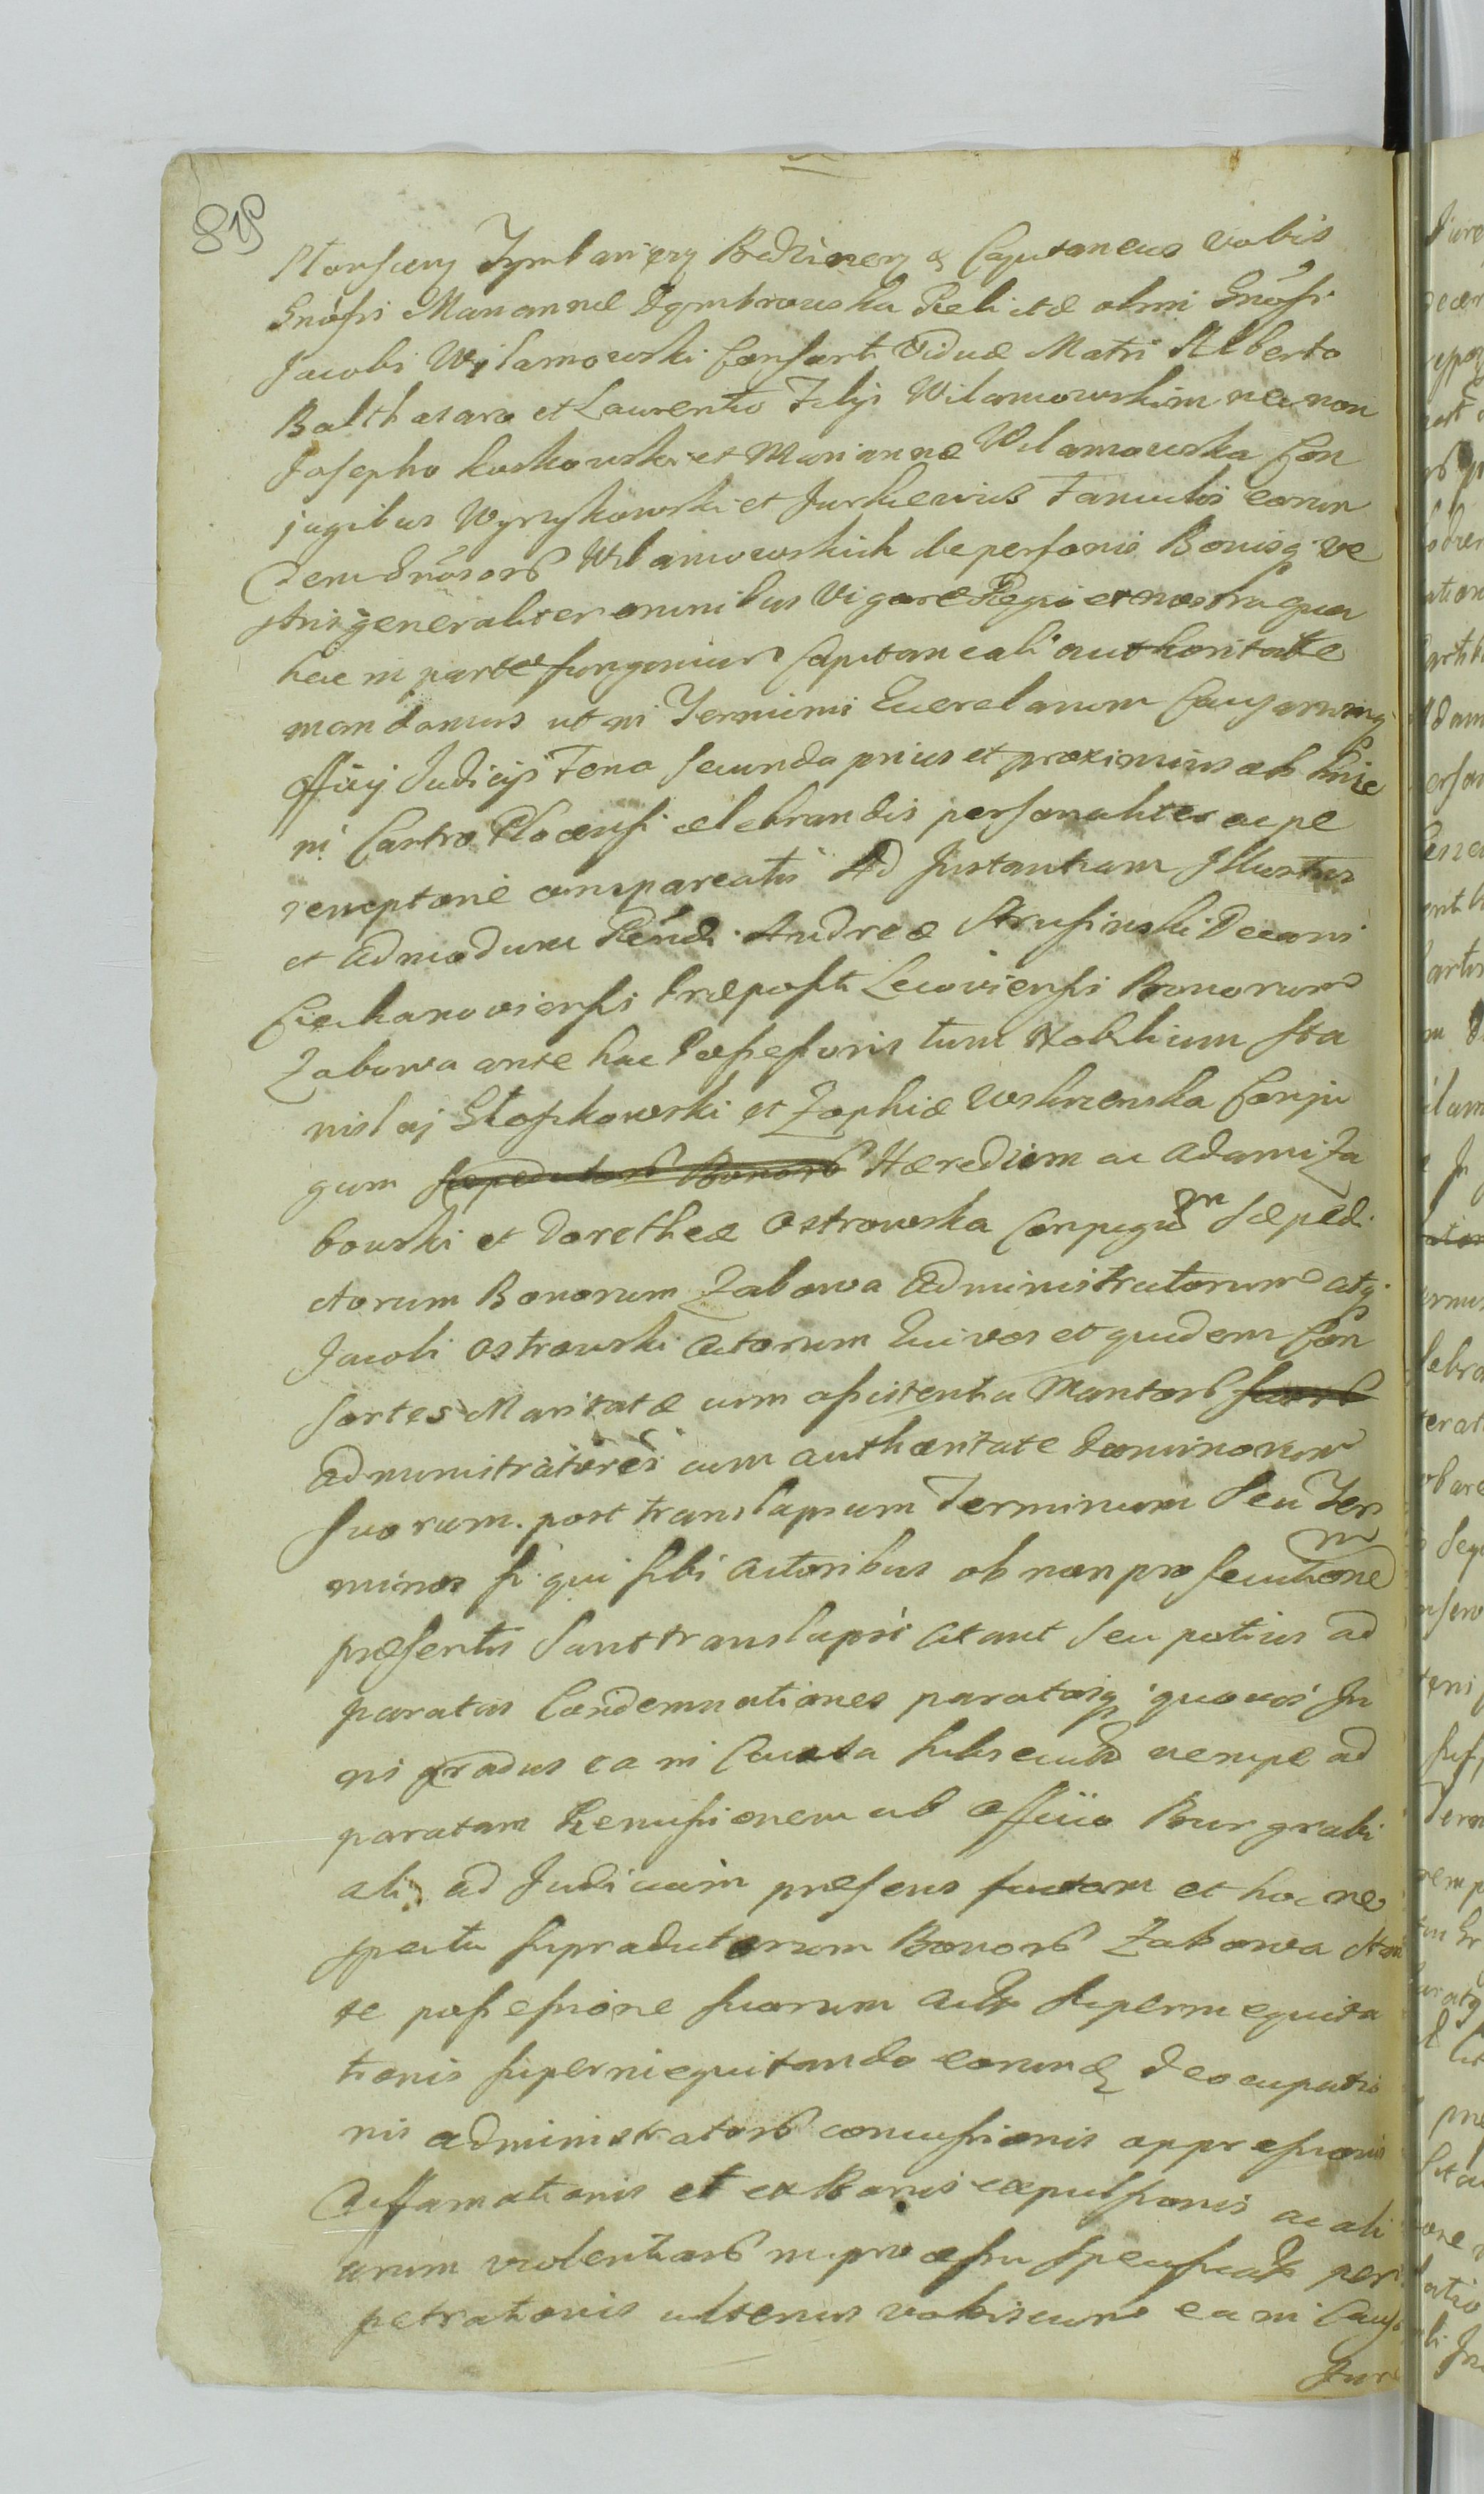 Gnosis Mariannæ Dembrowska Relictæ olim Gnosi
Jacobi Wilamowski Consorti Viduæ Matri Alberto
Balthasaro et Laurentio Filijs Wilamowskim nec non
Josepho et Mariannæ Wilamowska Con
jugibus Wyrzykowski et Jurkiewicz Famulis eorun
dem Gnosorb Wilamowskich de personis Bonisq ve
stris generaliter omnibus Vigore Regia et nostra qua
hac in parte fungimur Capitaneali authoritate
mandamus ut in Terminis Querelarum Causarumq
Officij Judicijs Feria secunda prius et proximius ab hinc
in Castro Plocensi celebrandis personaliter ac pe
remptorie compareatis Ad Instantiam Illustris
et Admodum Rendi Andreæ Strusinski Decani
Ciechanoviensis Præpositi Lecoviensis Bonorum
Zabowa ante hac Possessoris tum Nobilium Sta
nislaj Gloskowski et Zophiæ Conju
gum sæpedictorb Bonorb Hæredum ac Adami Za
bowski et Dorotheæ Ostrowska Conjugum sæpedi
ctorum Bonorum Zabowa Administratorum atq
Jacobi Ostrowski Actorum Qui vos et quidem Con
sortes Maritatæ cum assistentia Maritorb suorb
Administratores cum authoritate Dominorum
suorum post translapsum Terminum seu Ter
minos si qui sibi Actoribus ob non prosecutionem
præsentis sunt translapsi citant seu potius ad
paratas Condemnationes paratosq quosvis Ju
ris gradus ea in Causa subsecutos nempe ad
paratam Remissionem ab Officio Burgrabi
ali ad Judicium præsens factam et hoc re
spectu supradictorum Bonorb Zabowa
te possessione suorum superinequita
tionis superinequitando eorundem deocupatio
nis administratorb concussionis oppressionis
Diffamationis et ex Bonis expulsionis ac ali
arum violentiarb in processu specificatis per
petrationis ulterius vobiscum ea in Causa
Jure